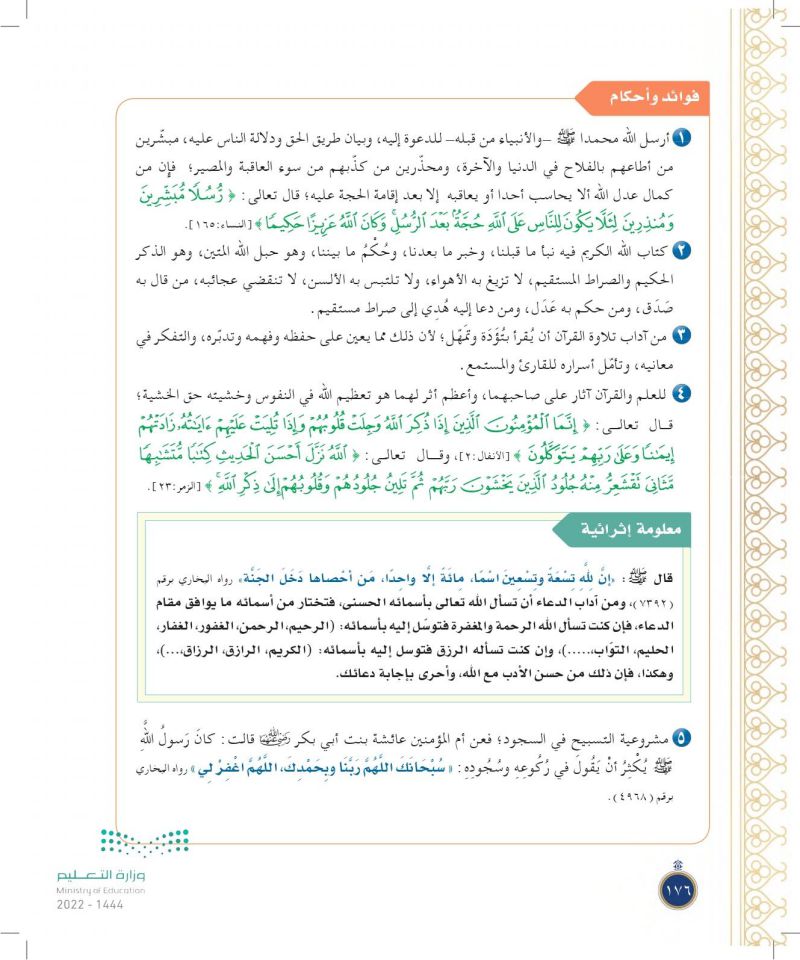 فوائد وأحكام
١ أرسل الله محمدا ﷺ –والأنبياء من قبله– للدعوة إليه، وبيان طريق الحق ودلالة الناس عليه، مبشّرين
من أطاعهم بالفلاح في الدنيا والآخرة، ومحذّرين من كذّبهم من سوء العاقبة والمصير؛ فإن من
كمال عدل الله ألا يحاسب أحدا أو يعاقبه إلا بعد إقامة الحجة عليه؛ قال تعالى: ﴿ رُّسُلًا مُّبَشِّرِينَ
وَمُنذِرِينَ لِئَلَّا يَكُونَ لِلنَّاسِ عَلَى ٱللَّهِ حُجَّةٌۢ بَعْدَ ٱلرُّسُلِۚ وَكَانَ ٱللَّهُ عَزِيزًا حَكِيمًا ﴾ [النساء:١٦٥].
٢ كتاب الله الكريم فيه نبأ ما قبلنا، وخبر ما بعدنا، وحُكْمُ ما بيننا، وهو حبل الله المتين، وهو الذكر
الحكيم والصراط المستقيم، لا تزيغ به الأهواء، ولا تلتبس به الألسن، لا تنقضي عجائبه، من قال به
صَدَق، ومن حكم به عَدَل، ومن دعا إليه هُدِي إلى صراط مستقيم.
٣ من آداب تلاوة القرآن أن يُقرأ بتُؤَدَة وتمَهّل؛ لأن ذلك مما يعين على حفظه وفهمه وتدبّره، والتفكر في
معانيه، وتأمّل أسراره للقارئ والمستمع.
٤ للعلم والقرآن آثار على صاحبهما، وأعظم أثر لهما هو تعظيم الله في النفوس وخشيته حق الخشية؛
قـال تعالـى: ﴿ إِنَّمَا ٱلْمُؤْمِنُونَ ٱلَّذِينَ إِذَا ذُكِرَ ٱللَّهُ وَجِلَتْ قُلُوبُهُمْ وَإِذَا تُلِيَتْ عَلَيْهِمْ ءَايَٰتُهُۥ زَادَتْهُمْ
إِيمَٰنًا وَعَلَىٰ رَبِّهِمْ يَتَوَكَّلُونَ ﴾ [الأنفال:٢]، وقـال تعالـى: ﴿ ٱللَّهُ نَزَّلَ أَحْسَنَ ٱلْحَدِيثِ كِتَٰبًا مُّتَشَٰبِهًا
مَّثَانِىَ تَقْشَعِرُّ مِنْهُ جُلُودُ ٱلَّذِينَ يَخْشَوْنَ رَبَّهُمْ ثُمَّ تَلِينُ جُلُودُهُمْ وَقُلُوبُهُمْ إِلَىٰ ذِكْرِ ٱللَّهِۚ ﴾ [الزمر:٢٣].
معلومة إثرائية
قال ﷺ: «إِنَّ لِلَّهِ تِسْعَةً وتِسْعِينَ اسْمًا، مِائَةً إلَّا واحِدًا، مَن أحْصاها دَخَلَ الجَنَّةَ» رواه البخاري برقم
(٧٣٩٢)، ومن آداب الدعاء أن تسأل الله تعالى بأسمائه الحسنى، فتختار من أسمائه ما يوافق مقام
الدعاء، فإن كنت تسأل الله الرحمة والمغفرة فتوسّل إليه بأسمائه: (الرحيم، الرحمن، الغفور، الغفار،
الحليم، التوّاب،.....)، وإن كنت تسأله الرزق فتوسل إليه بأسمائه: (الكريم، الرازق، الرزاق،...)،
وهكذا، فإن ذلك من حسن الأدب مع الله، وأحرى بإجابة دعائك.
٥ مشروعية التسبيح في السجود؛ فعن أم المؤمنين عائشة بنت أبي بكر رضي الله عنها قالت: كانَ رَسولُ اللَّهِ
ﷺ يُكْثِرُ أنْ يَقُولَ في رُكُوعِهِ وسُجُودِهِ: «سُبْحَانَكَ اللَّهُمَّ رَبَّنَا وبِحَمْدِكَ، اللَّهُمَّ اغْفِرْ لِي» رواه البخاري
برقم (٤٩٦٨).
وزارة التعـليم
Ministry of Education
2022 - 1444
١٧٦